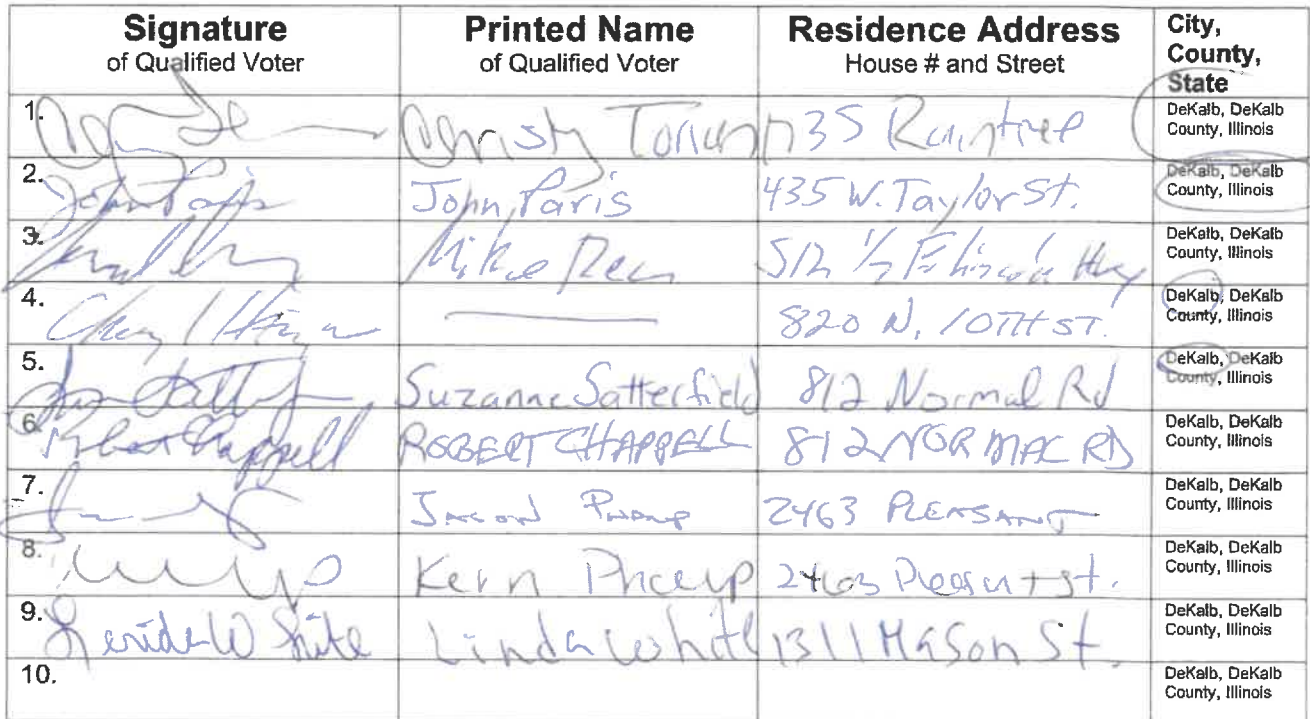 Signature Printed Name Residence Address City,
of Qualified Voter of Qualified Voter House # and Street County,
State
1. Christy 35 Raintree DeKalb, DeKalb
County, Illinois
2. John Paris John Paris 435 W. Taylor St. DeKalb, DeKalb
County, Illinois
3. Mike DeKalb, DeKalb
County, Illinois
4. 820 N. 10TH ST. DeKalb, DeKalb
County, Illinois
5. Suzanne Satterfield 812 Normal Rd DeKalb, DeKalb
County, Illinois
6. Robert Chappell ROBERT CHAPPELL 812 NORMAL RD DeKalb, DeKalb
County, Illinois
7. JASON 2463 PLEASANT DeKalb, DeKalb
County, Illinois
8. 2463 st. DeKalb, DeKalb
County, Illinois
9. Linda White Linda White 1311 Mason St. DeKalb, DeKalb
County, Illinois
10. DeKalb, DeKalb
County, Illinois